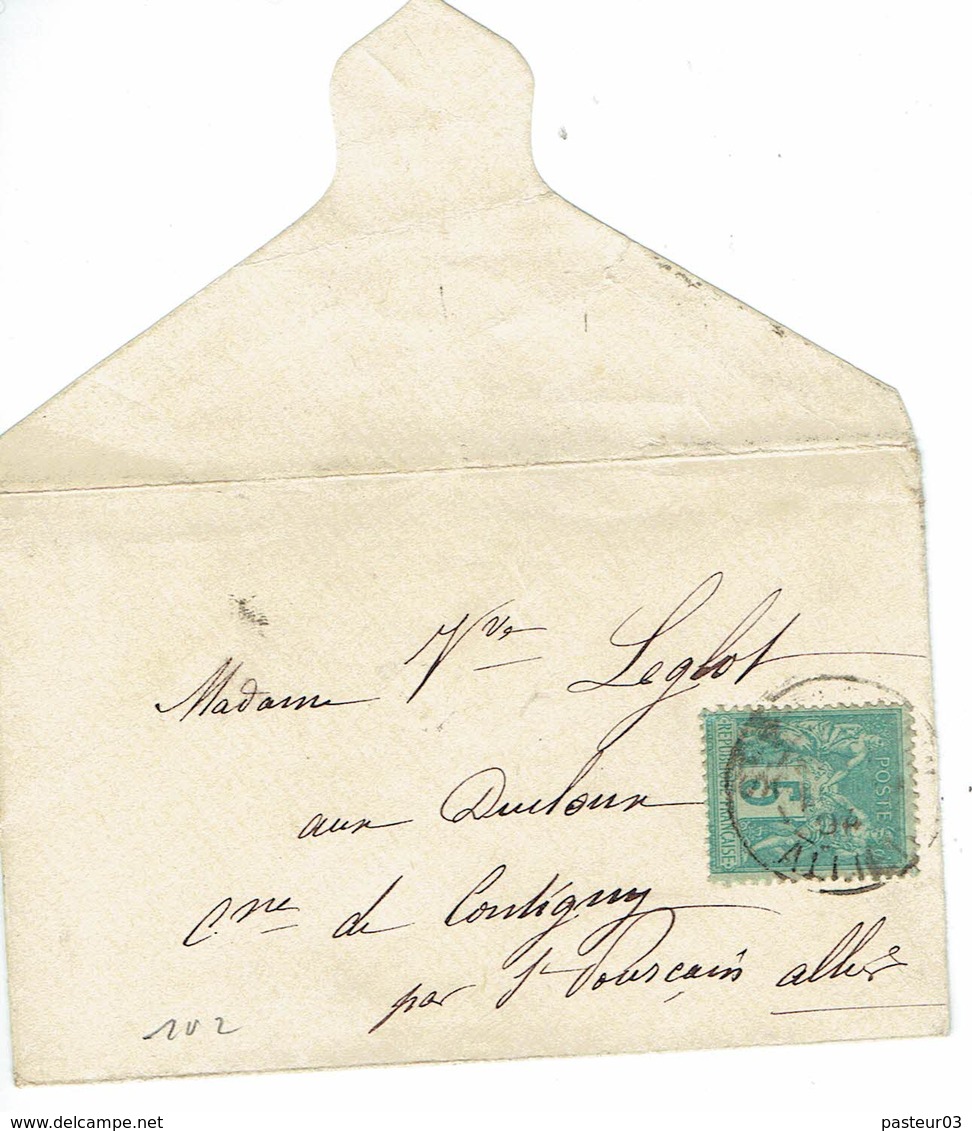 Madame Vve Leglot
aux Ducloux
Cne de Contigny
par St Pourçain allier
102
POSTE
5
REPUBLIQUE FRANCAISE
ALLIER
delcampe.net
pasteur03